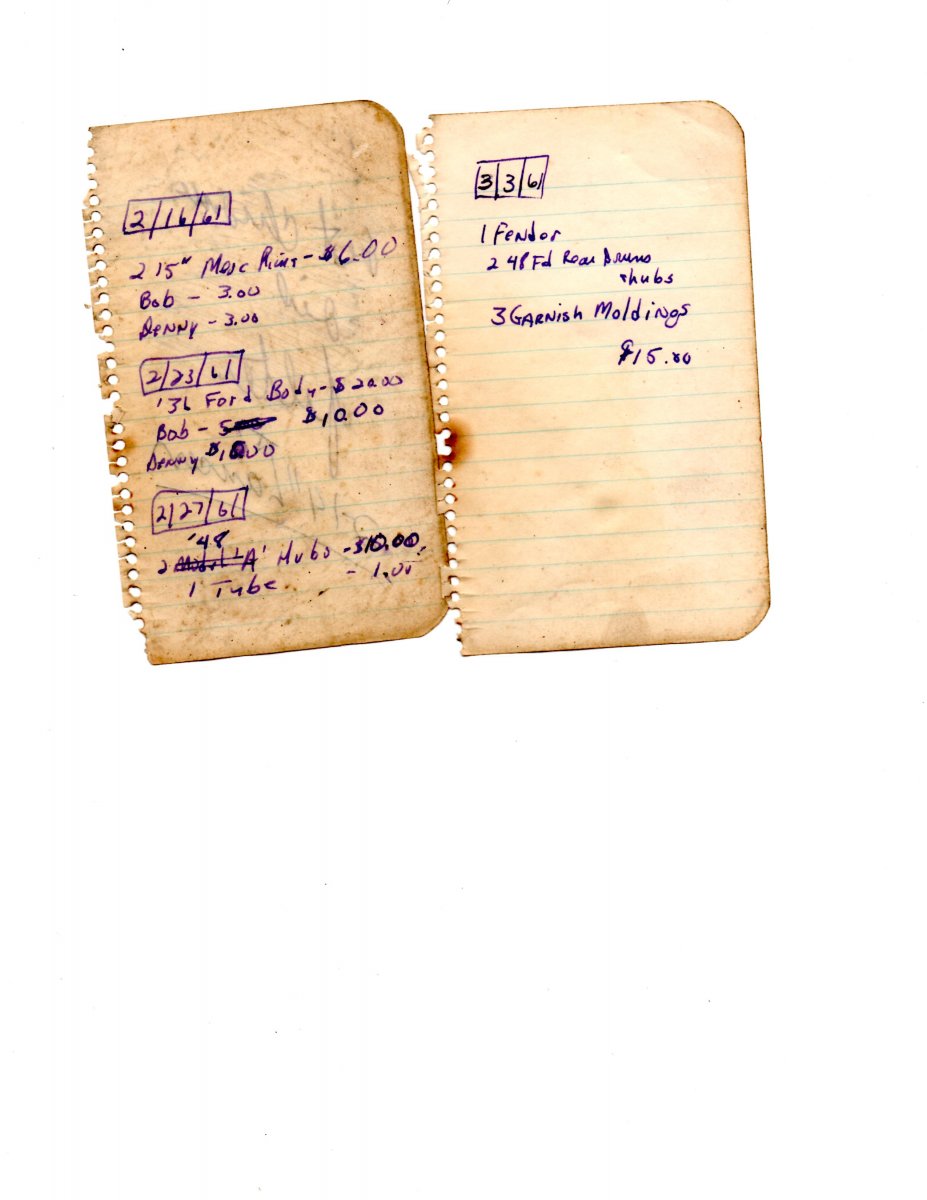 2/16/61
2 15" Merc Rims - $6.00
Bob - 3.00
Denny - 3.00
2/23/61
'36 Ford Body - $20.00
Bob - $10.00
Denny $10.00
2/27/61
'48
2 Model 'A' Hubs - $10.00
1 Tube - 1.00
3 3 61
1 Fendor
2 48 Fd Rear Drums
+hubs
3 GARNish Moldings
$15.00